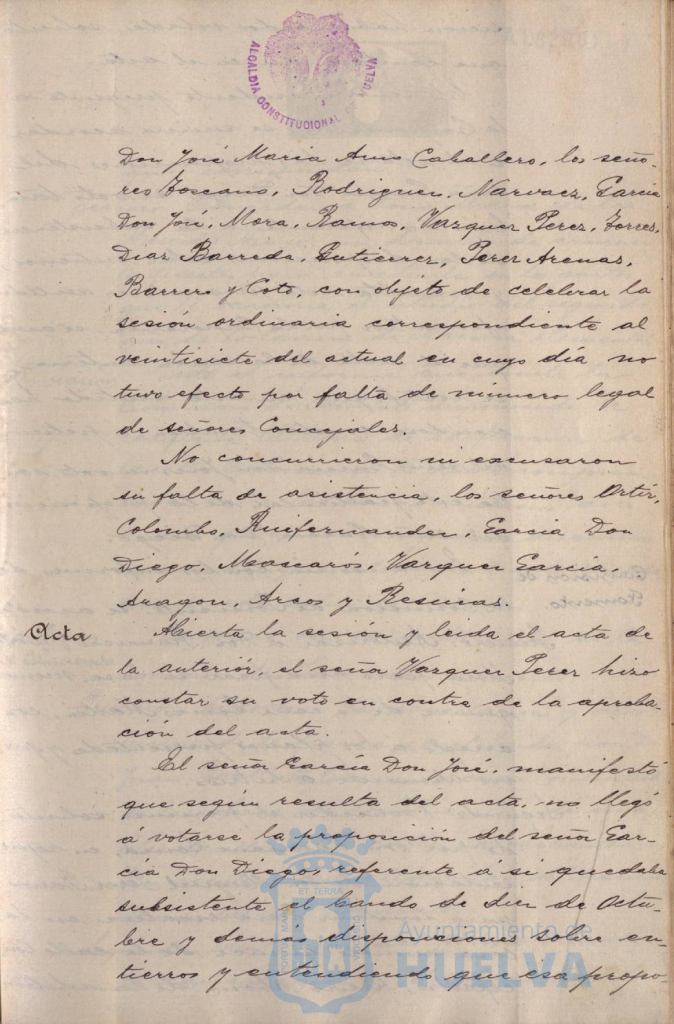 ALCALDIA CONSTITUCIONAL HUELVA
Don José Maria Amo Caballero, los seño-
res Toscano, Rodriguez, Narvaez, Garcia
Don José, Mora, Ramos, Vazquez Perez, Torres,
Diaz Barreda, Gutierrez, Perez Arenas,
Barrero y Coto, con objeto de celebrar la
sesión ordinaria correspondiente al
veintisiete del actual en cuyo día no
tuvo efecto por falta de número legal
de señores Concejales.
No concurrieron ni excusaron
su falta de asistencia, los señores Ortíz,
Colombo, Ruifernandez, Garcia Don
Diego, Mascarós, Vazquez García,
Aragon, Arcos y Resinas.
Acta
Abierta la sesión y leida el acta de
la anteriór, el señor Vazquez Perez hizo
constar su voto en contra de la aproba-
ción del acta.
El señor García Don José, manifestó
que según resulta del acta, no llegó
á votarse la proposición del señor Gar-
cía Don Diego, referente á si quedaba
subsistente el bando de diez de Octu-
bre y demás disposiciones sobre en-
tierros y entendiendo que esa propo-
Ayuntamiento de
HUELVA